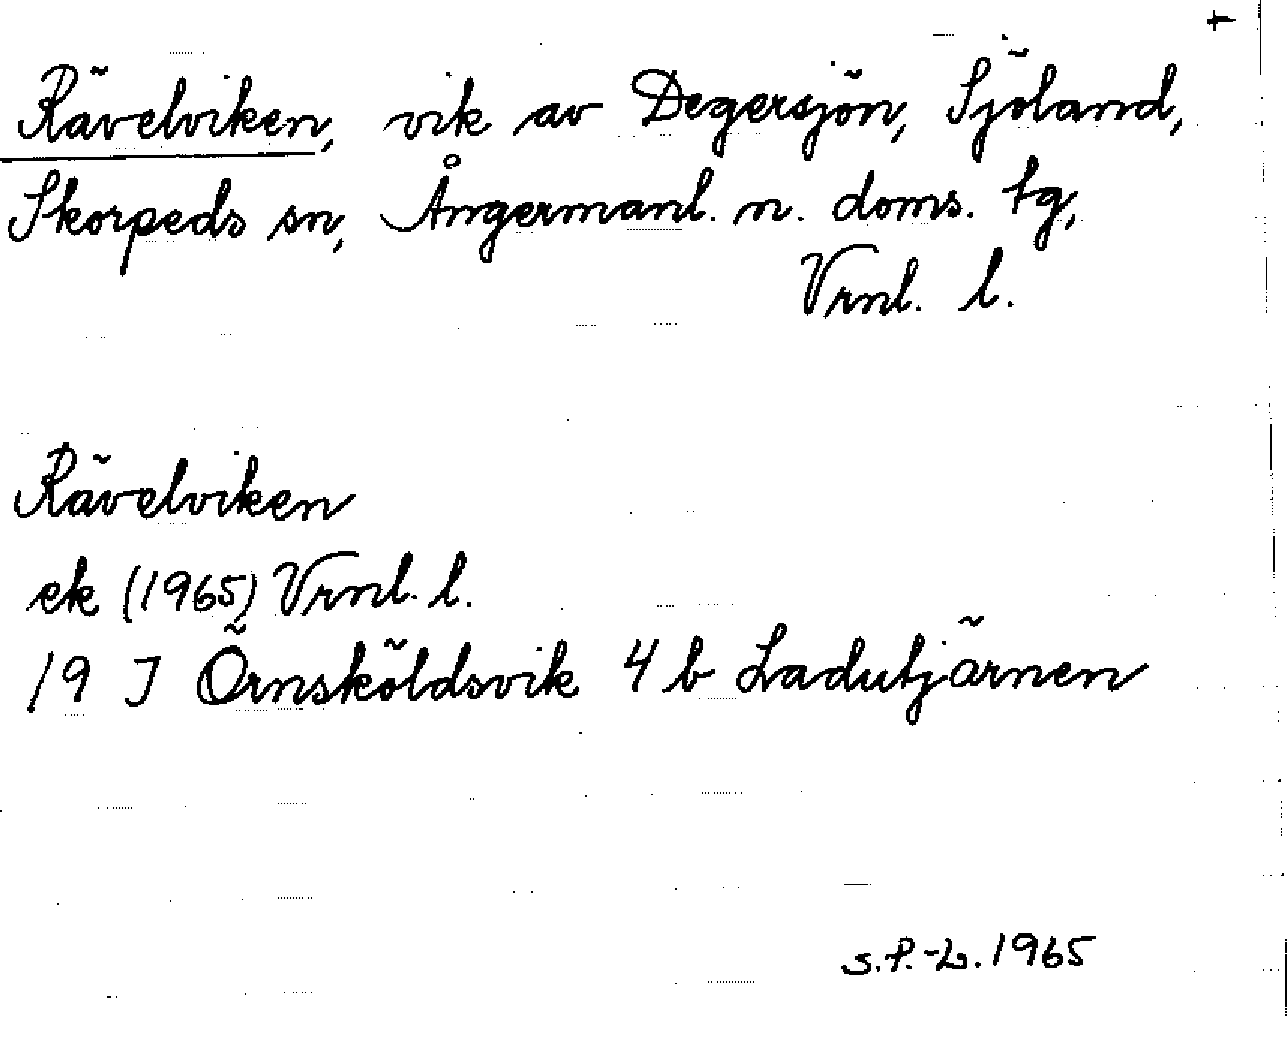 +
Rävelviken, vik av Degersjön, Sjöland,
Skorpeds sn, Ångermanl. n. doms. tg,
Vrnl. l.
Rävelviken
ek (1965) Vrnl. l.
19 J Örnsköldsvik 4 b Ladutjärnen
S.P.-L. 1965